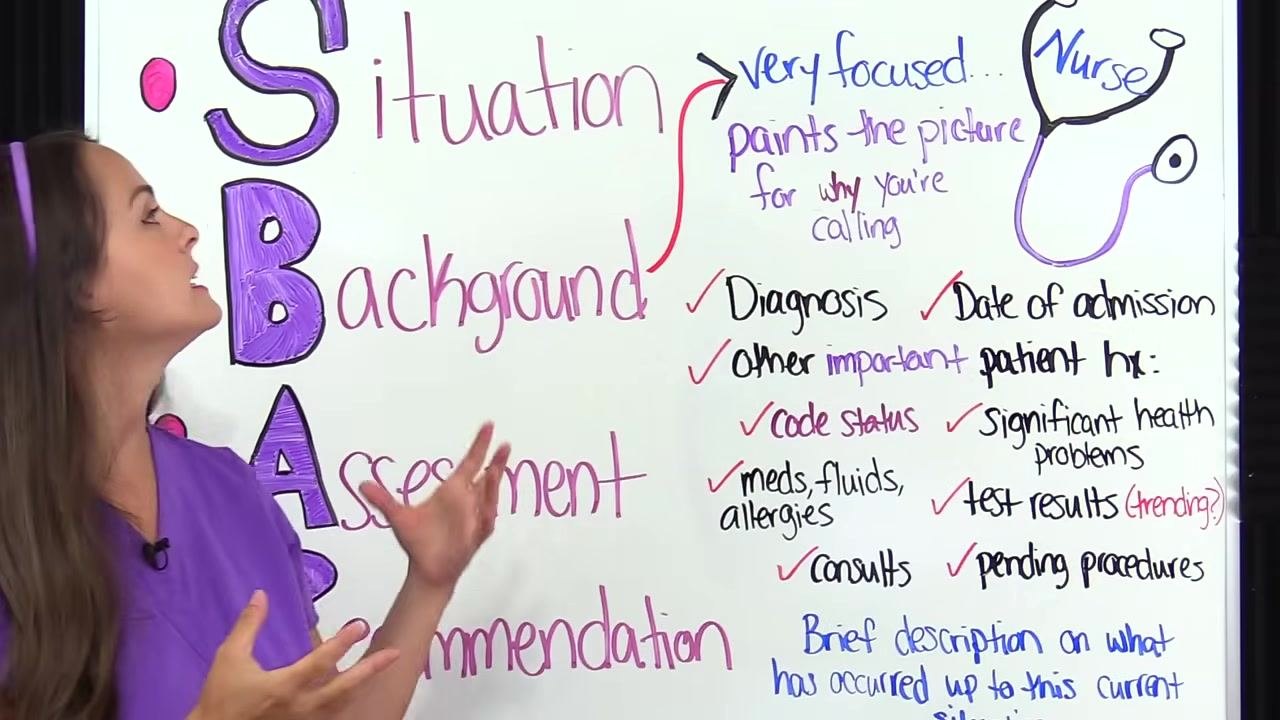 Situation
Background
Assessment
Recommendation
very focused...
paints the picture
for why you're
calling
Nurse
✓ Diagnosis ✓ Date of admission
✓ other important patient hx:
✓ code status ✓ significant health
problems
✓ meds, fluids,
allergies
✓ test results (trending?)
✓ consults ✓ pending procedures
Brief description on what
has occurred up to this current